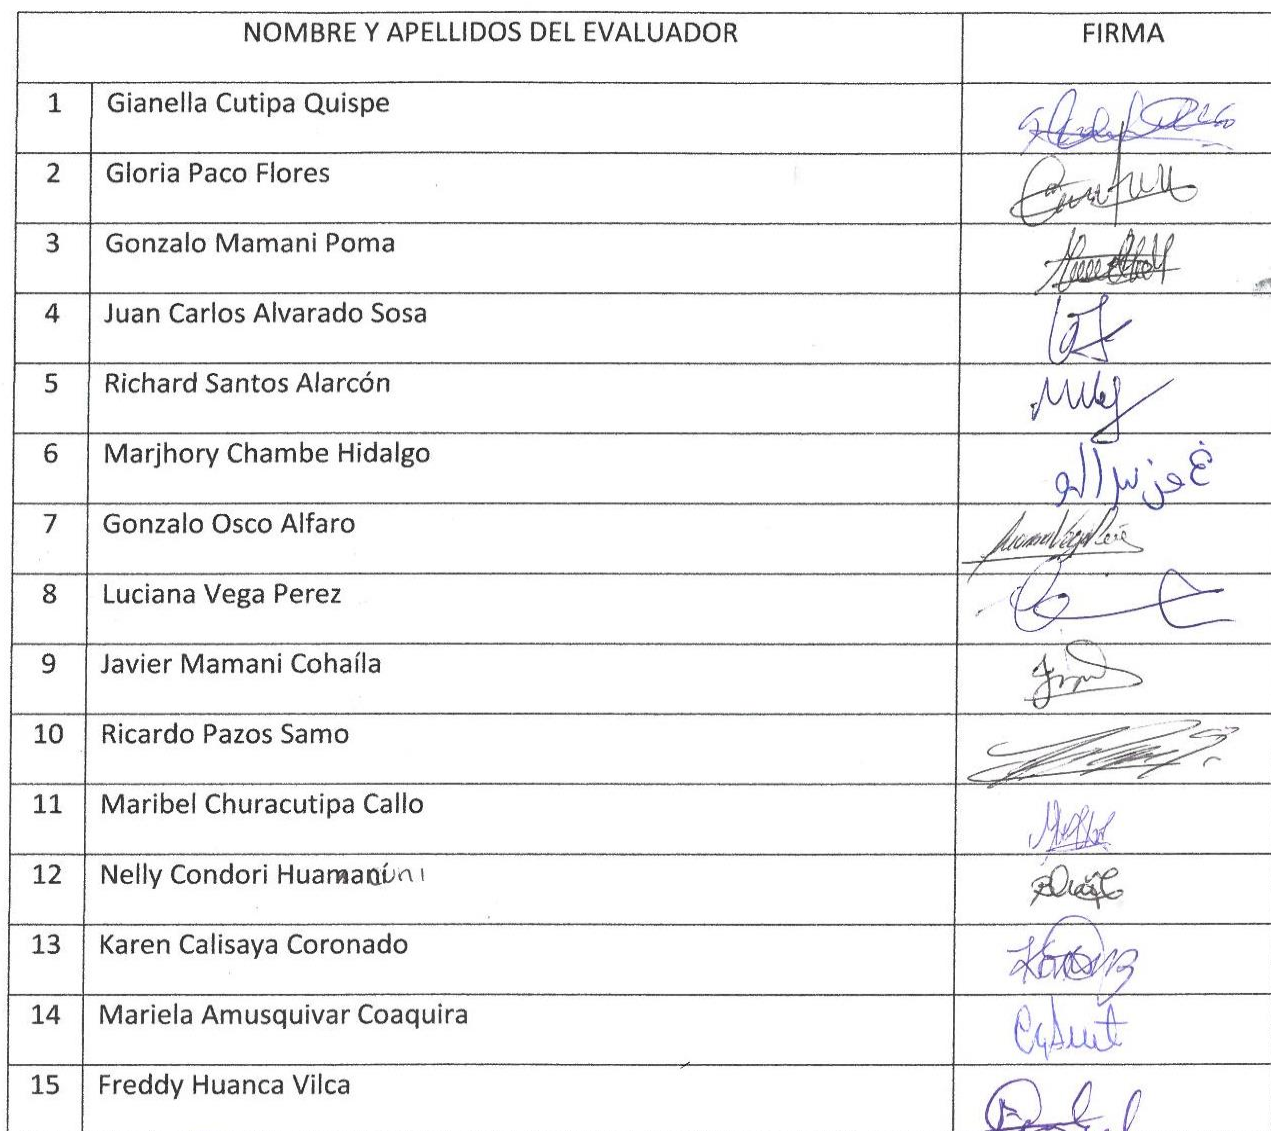 NOMBRE Y APELLIDOS DEL EVALUADOR FIRMA
1 Gianella Cutipa Quispe
2 Gloria Paco Flores
3 Gonzalo Mamani Poma
4 Juan Carlos Alvarado Sosa
5 Richard Santos Alarcón
6 Marjhory Chambe Hidalgo
7 Gonzalo Osco Alfaro
8 Luciana Vega Perez
9 Javier Mamani Cohaíla
10 Ricardo Pazos Samo
11 Maribel Churacutipa Callo
12 Nelly Condori
13 Karen Calisaya Coronado
14 Mariela Amusquivar Coaquira
15 Freddy Huanca Vilca